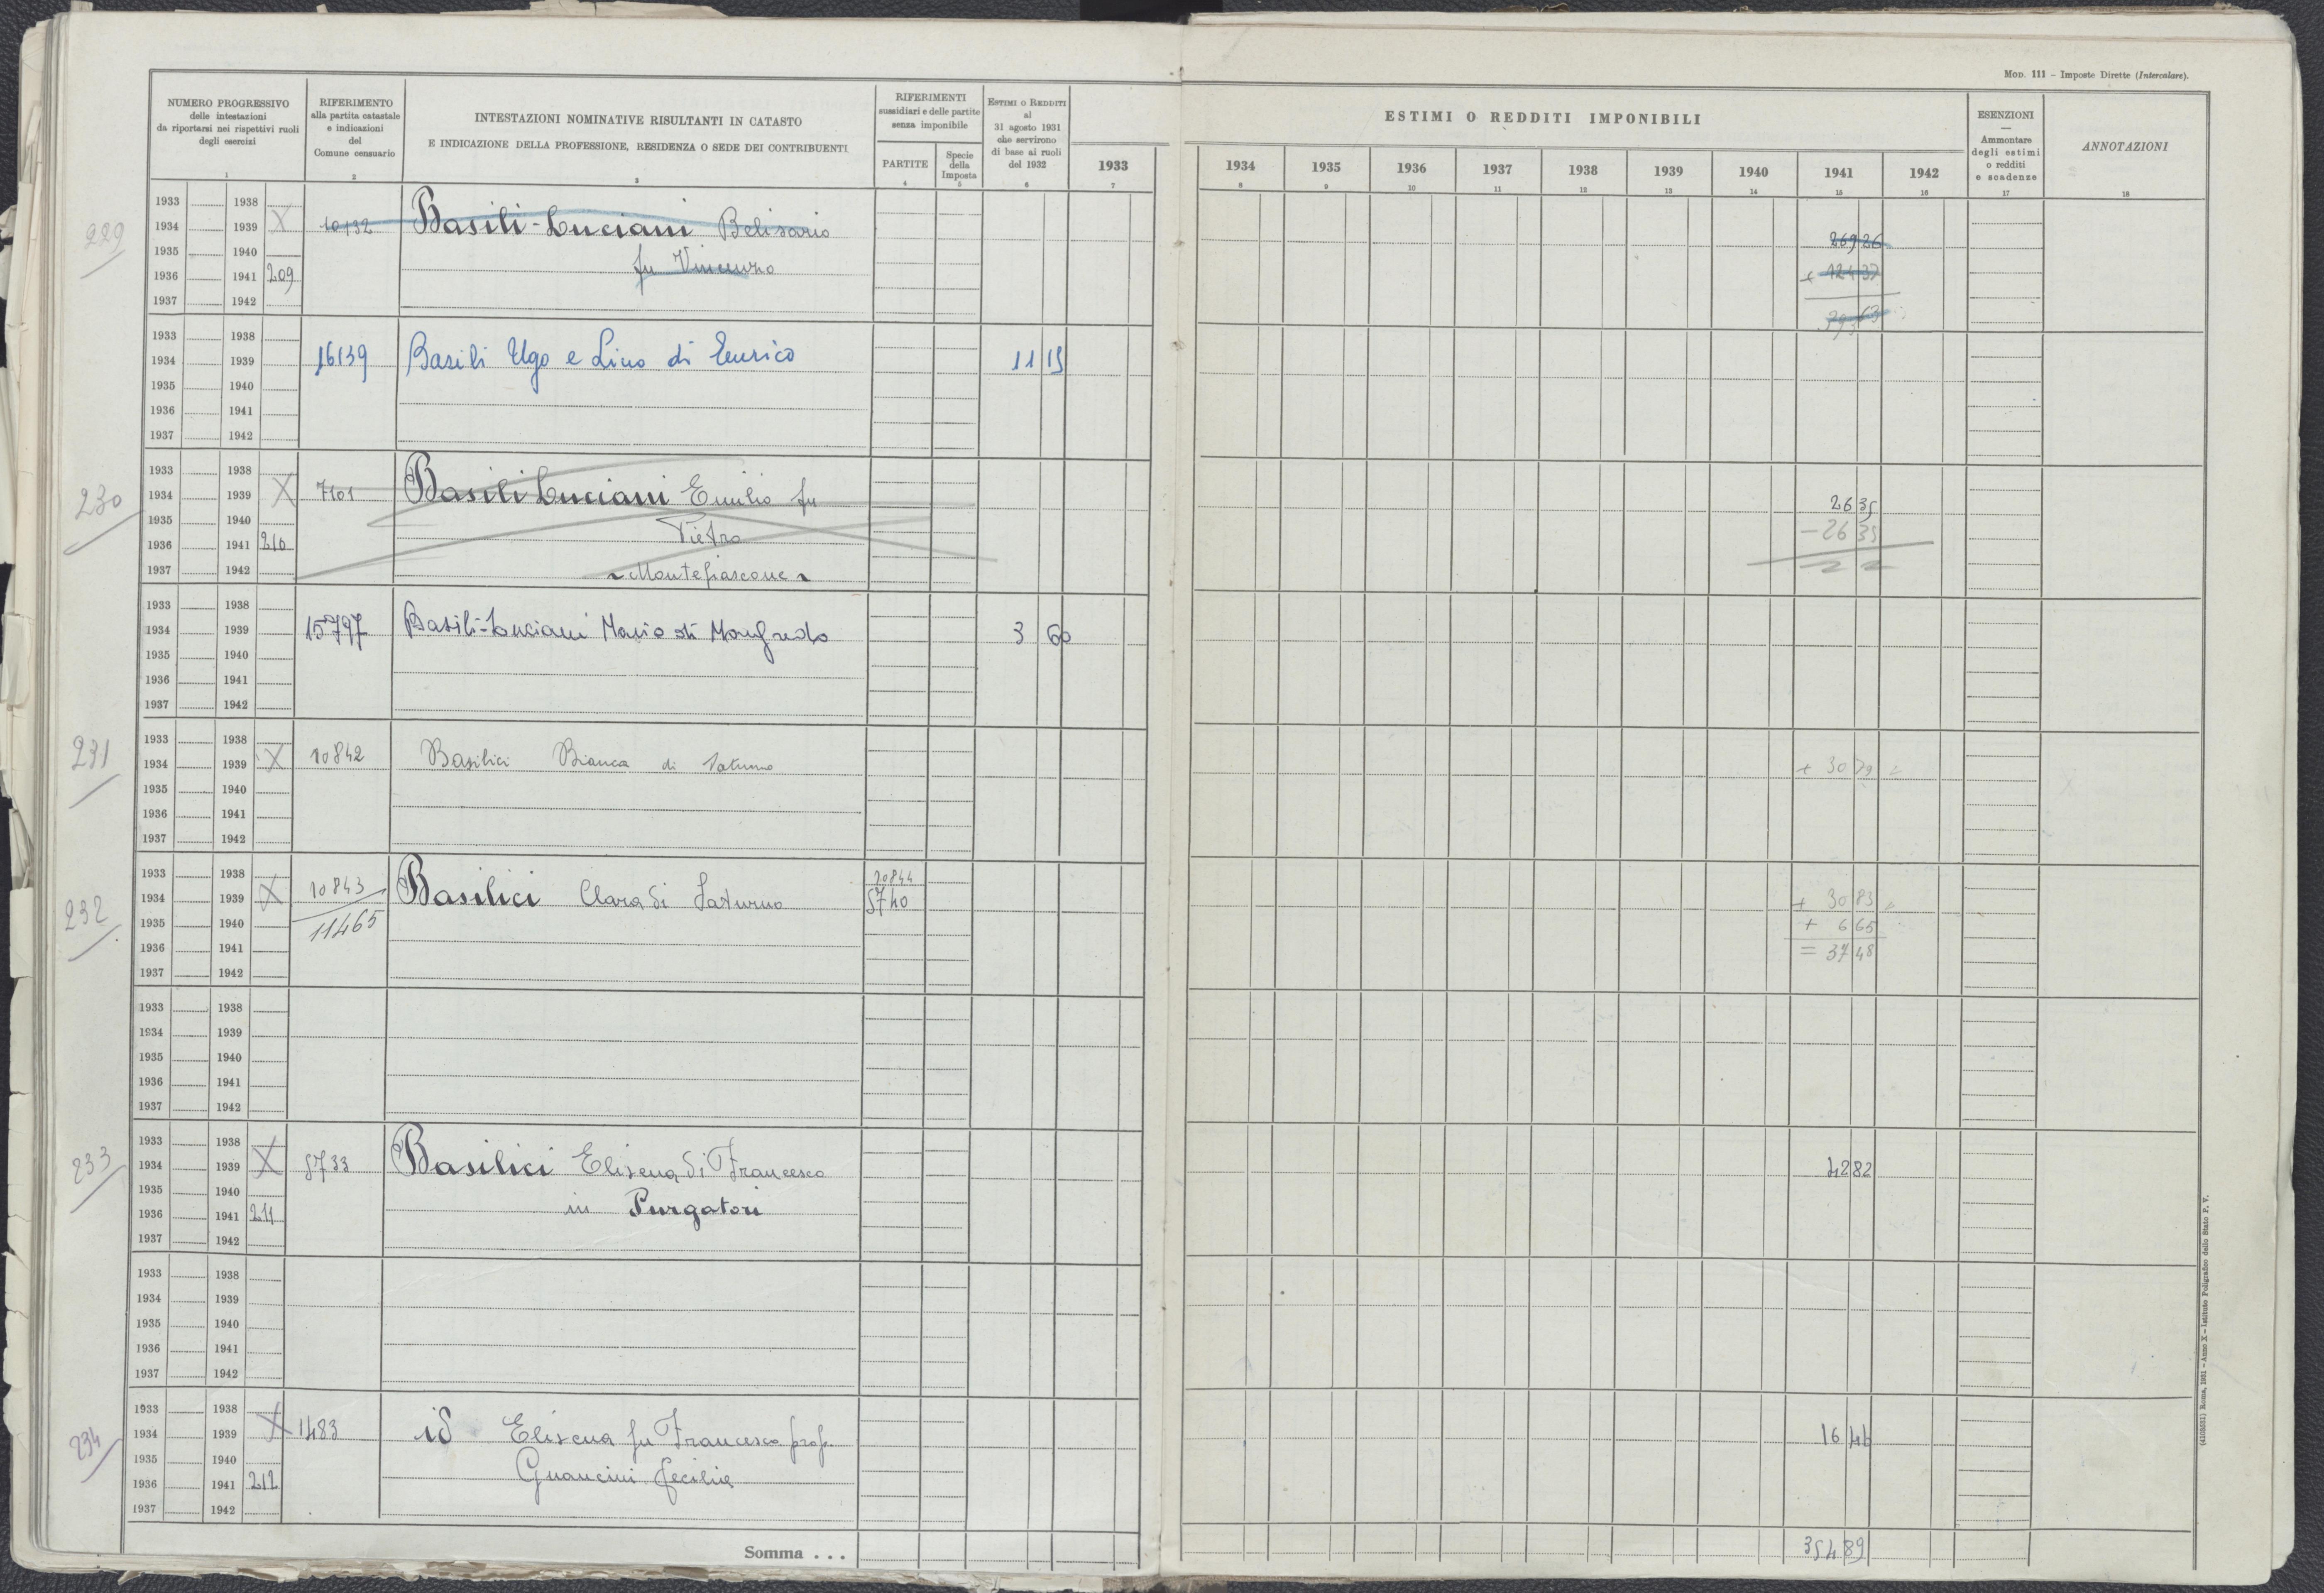 Mod. 111 – Imposte Dirette (Intercalare).
NUMERO PROGRESSIVO
delle intestazioni
da riportarsi nei rispettivi ruoli
degli esercizi
1
RIFERIMENTO
alla partita catastale
e indicazioni
del
Comune censuario
2
INTESTAZIONI NOMINATIVE RISULTANTI IN CATASTO
E INDICAZIONE DELLA PROFESSIONE, RESIDENZA O SEDE DEI CONTRIBUENTI
3
RIFERIMENTI
sussidiari e delle partite
senza imponibile
PARTITE
4
Specie
della
Imposta
5
Estimi o Redditi
al
31 agosto 1931
che servirono
di base ai ruoli
del 1932
6
1933
7
ESTIMI O REDDITI IMPONIBILI
1934 1935 1936 1937 1938 1939 1940 1941 1942
8 9 10 11 12 13 14 15 16
ESENZIONI
—
Ammontare
degli estimi
o redditi
e scadenze
17
ANNOTAZIONI
18
229
1933 1938
1934 1939 X 10132 Basili-Luciani Belisario 269 26
1935 1940 fu Vincenzo
1936 1941 209 + 124 37
1937 1942 393 63
1933 1938
1934 1939 16139 Basili Ugo e Lino di Enrico 11 15
1935 1940
1936 1941
1937 1942
230
1933 1938
1934 1939 X 7101 Basili Luciani Emilio fu 26 35
1935 1940 Pietro
1936 1941 210 – 26 35
1937 1942 Montefiascone
1933 1938
1934 1939 15797 Basili-Luciani Mario di Manfredo 3 60
1935 1940
1936 1941
1937 1942
231
1933 1938
1934 1939 X 10842 Basilici Bianca di Saturno + 30 79
1935 1940
1936 1941
1937 1942
232
1933 1938 10844
1934 1939 X 10843 Basilici Clara di Saturno 5740 + 30 83
1935 1940 11465 + 6 65
1936 1941 = 37 48
1937 1942
1933 1938
1934 1939
1935 1940
1936 1941
1937 1942
233
1933 1938
1934 1939 X 5733 Basilici Elisena di Francesco 42 82
1935 1940
1936 1941 211 in Purgatori
1937 1942
1933 1938
1934 1939
1935 1940
1936 1941
1937 1942
234
1933 1938
1934 1939 X 1483 id Elisena fu Francesco prop. 16 46
1935 1940
1936 1941 212 Guancini Cecilia
1937 1942
Somma . . . 354 89
(4103031) Roma, 1931 – Anno X – Istituto Poligrafico dello Stato P. V.